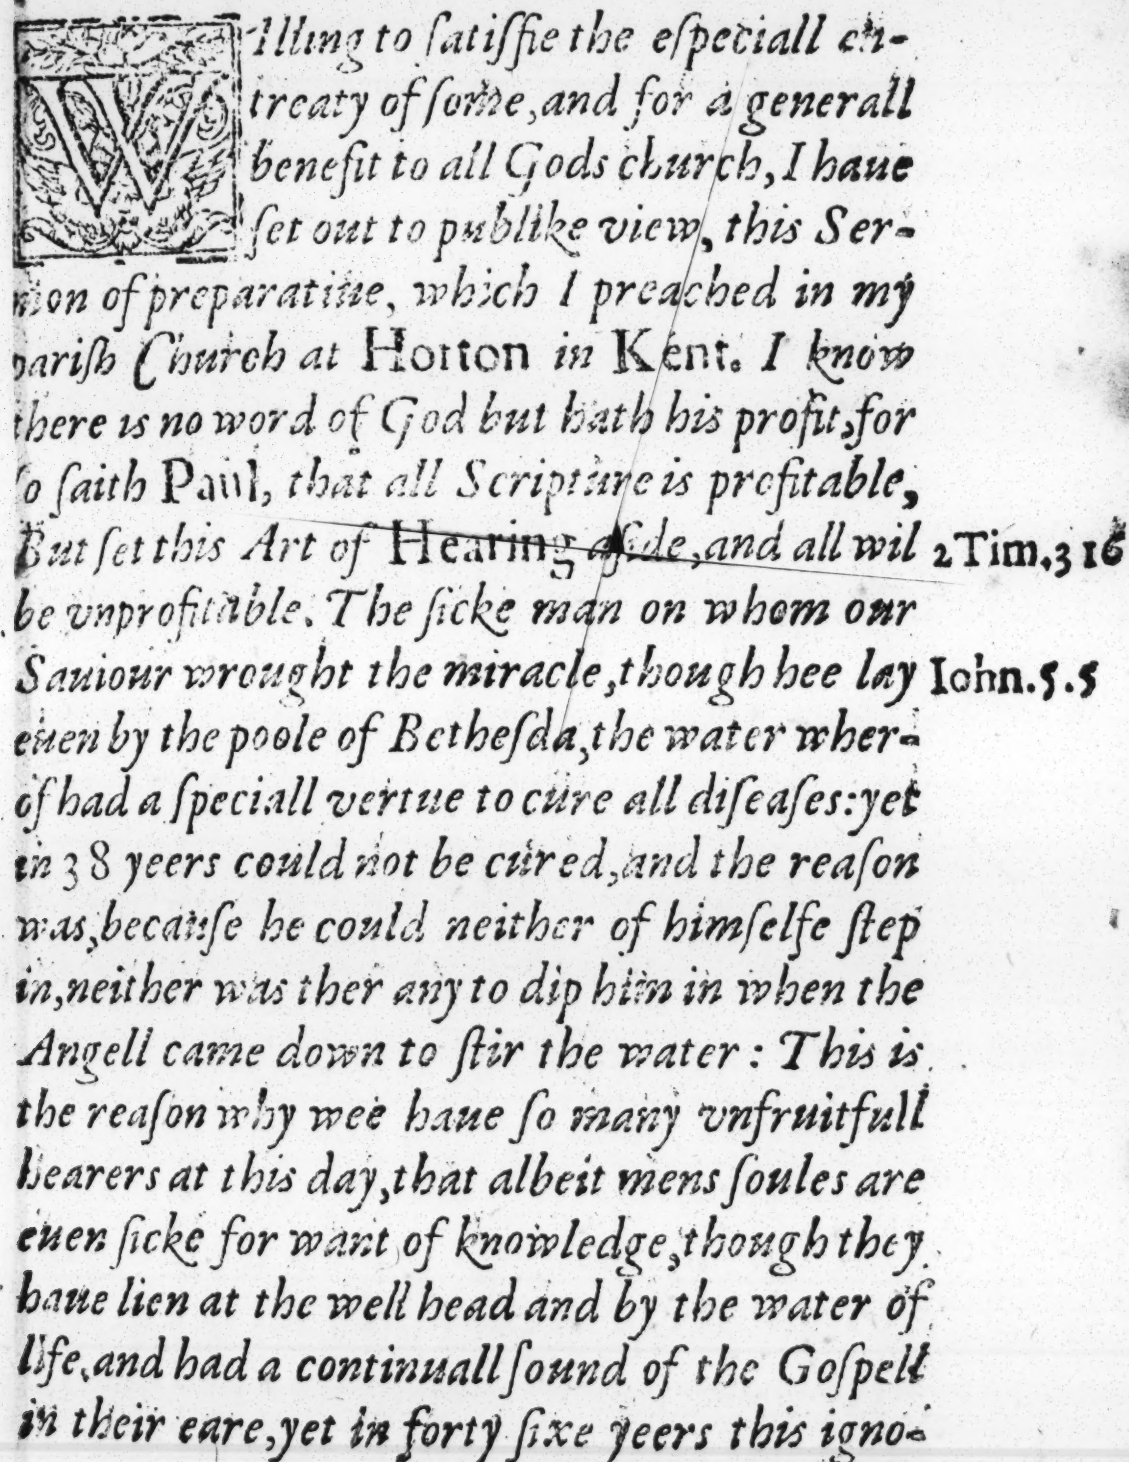 WIlling to ſatiſfie the eſpeciall en-
treaty of ſome, and for a generall
benefit to all Gods church, I haue
ſet out to publike view, this Ser-
mon of preparatiue, which I preached in my
pariſh Church at Horton in Kent. I know
there is no word of God but hath his profit, for
ſo ſaith Paul, that all Scripture is profitable,
But ſet this Art of Hearing aſide, and all wil
2 Tim. 3 16
be vnprofitable. The ſicke man on whom our
Sauiour wrought the miracle, though hee lay
Iohn. 5. 5
euen by the poole of Betheſda, the water wher-
of had a ſpeciall vertue to cure all diſeaſes: yet
in 38 yeers could not be cured, and the reaſon
was, becauſe he could neither of himſelfe ſtep
in, neither was ther any to dip him in when the
Angell came down to ſtir the water: This is
the reaſon why wee haue ſo many vnfruitfull
hearers at this day, that albeit mens ſoules are
euen ſicke for want of knowledge, though they
haue lien at the well head and by the water of
life, and had a continuall ſound of the Goſpell
in their eare, yet in forty ſixe yeers this igno-